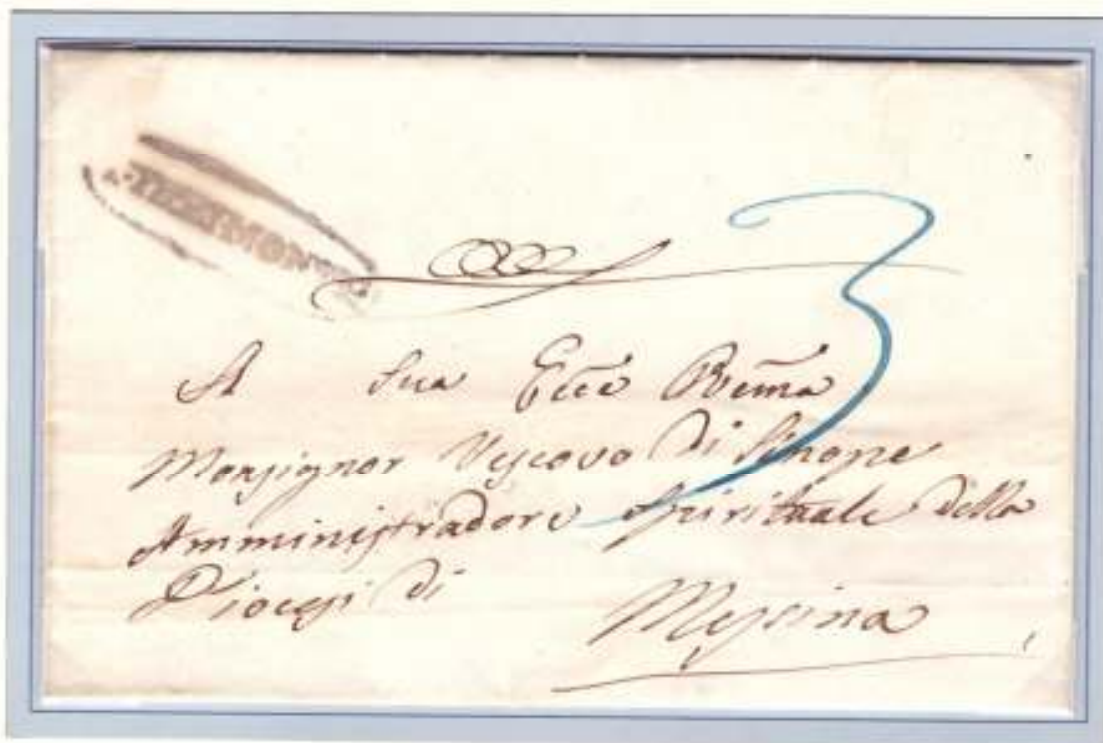 3
A Sua Ecc̃e Rm̃a
Monsignor Vescovo di Sinope
Amministradore Spirituale della
Diocesi di
Messina